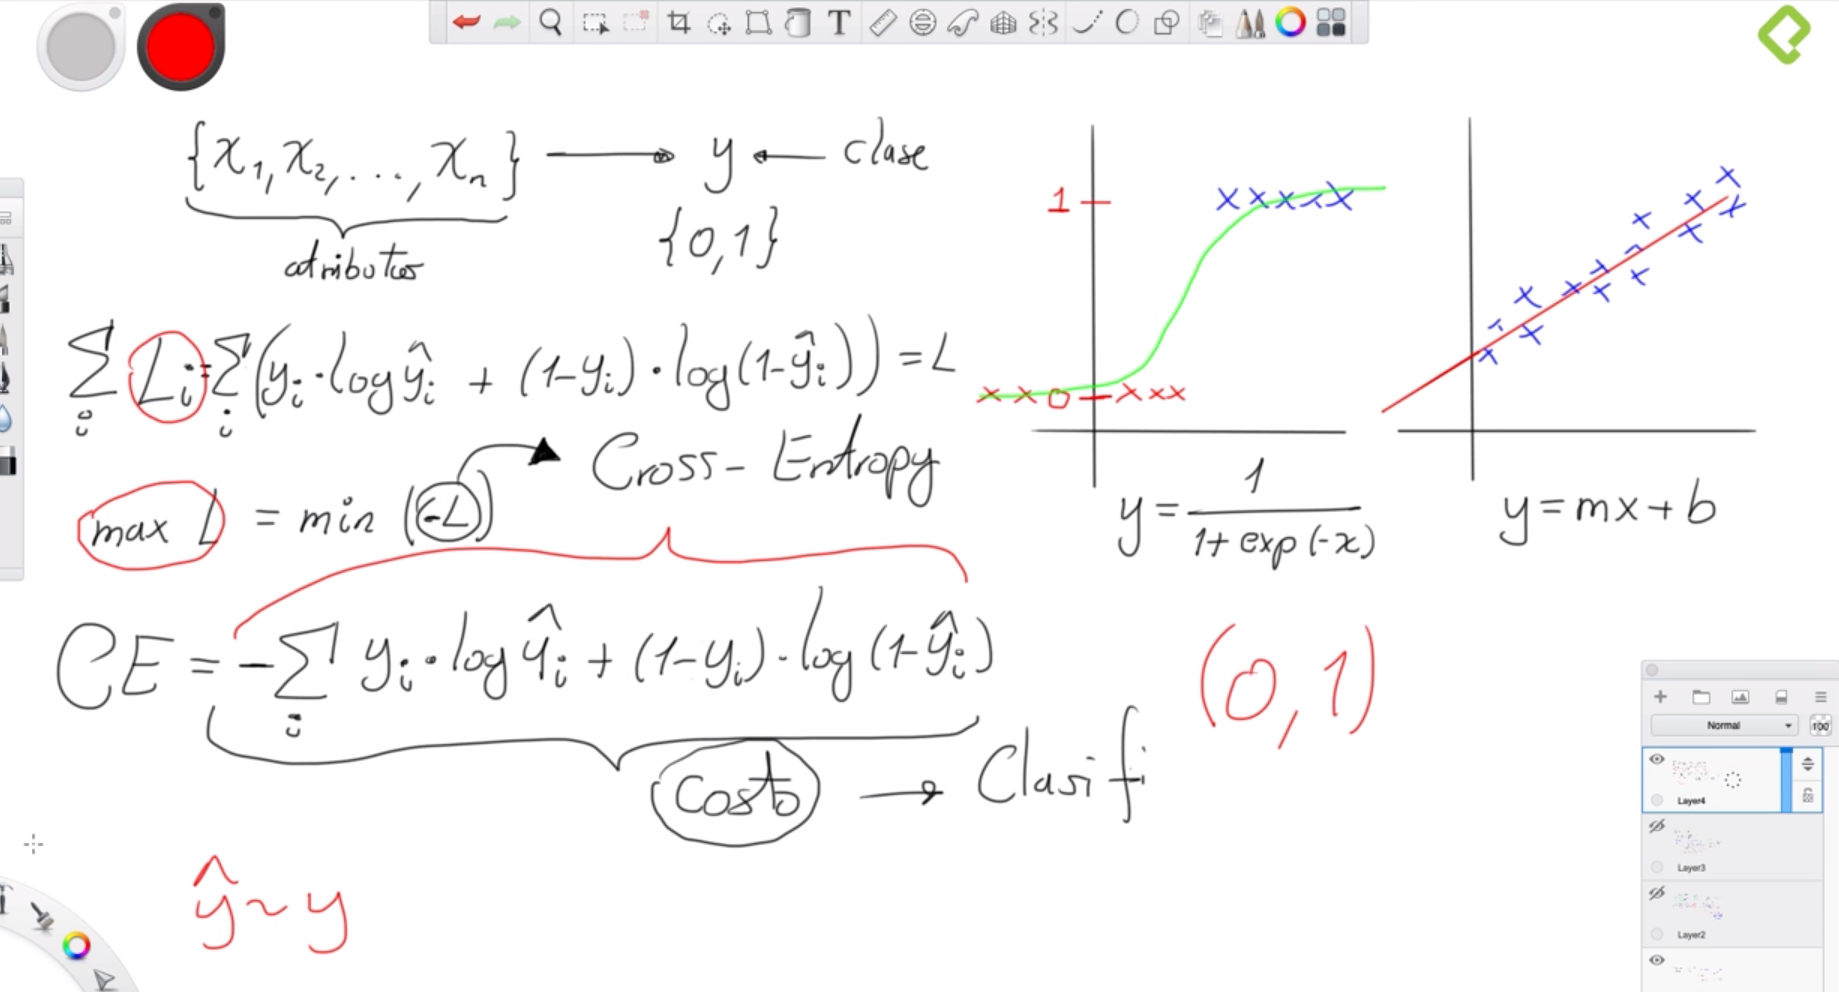 {x₁, x₂, ..., xₙ} → y ← clase
atributos
{0,1}
∑ᵢ Lᵢ = ∑ᵢ (yᵢ · log ŷᵢ + (1-yᵢ) · log(1-ŷᵢ)) = L
max L = min (-L)
Cross-Entropy
CE = -∑ᵢ yᵢ · log ŷᵢ + (1-yᵢ) · log(1-ŷᵢ)
Costo → Clasifi
ŷ ~ y
1
0
y = 1 / (1 + exp(-x))
y = mx + b
(0,1)
T
Normal
100
Layer4
Layer3
Layer2